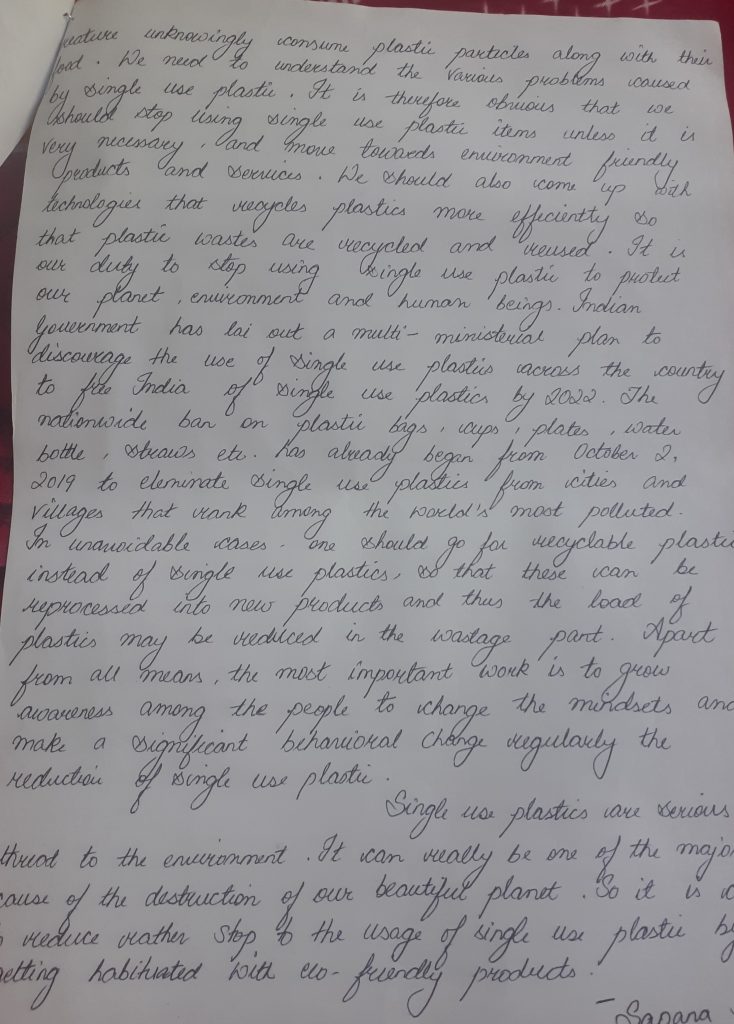 creature unknowingly consume plastic particles along with their
food. We need to understand the various problems caused
by single use plastic. It is therefore obvious that we
should stop using single use plastic items unless it is
very necessary, and move towards environment friendly
products and services. We should also come up with
technologies that recycles plastics more efficiently so
that plastic wastes are recycled and reused. It is
our duty to stop using single use plastic to protect
our planet, environment and human beings. Indian
Government has lai out a multi-ministerial plan to
discourage the use of single use plastics across the country
to free India of single use plastics by 2022. The
nationwide ban on plastic bags, cups, plates, water
bottle, straws etc. has already began from October 2,
2019 to eleminate single use plastics from cities and
villages that rank among the world's most polluted.
In unavoidable cases. one should go for recyclable plastic
instead of single use plastics, so that these can be
reprocessed into new products and thus the load of
plastics may be reduced in the wastage part. Apart
from all means, the most important work is to grow
awareness among the people to change the mindsets and
make a significant behavioral change regularly the
reduction of single use plastic.
Single use plastics are serious
thread to the environment. It can really be one of the major
cause of the destruction of our beautiful planet. So it is
reduce rather stop to the usage of single use plastic by
getting habituated with eco-friendly products.
- Sapana